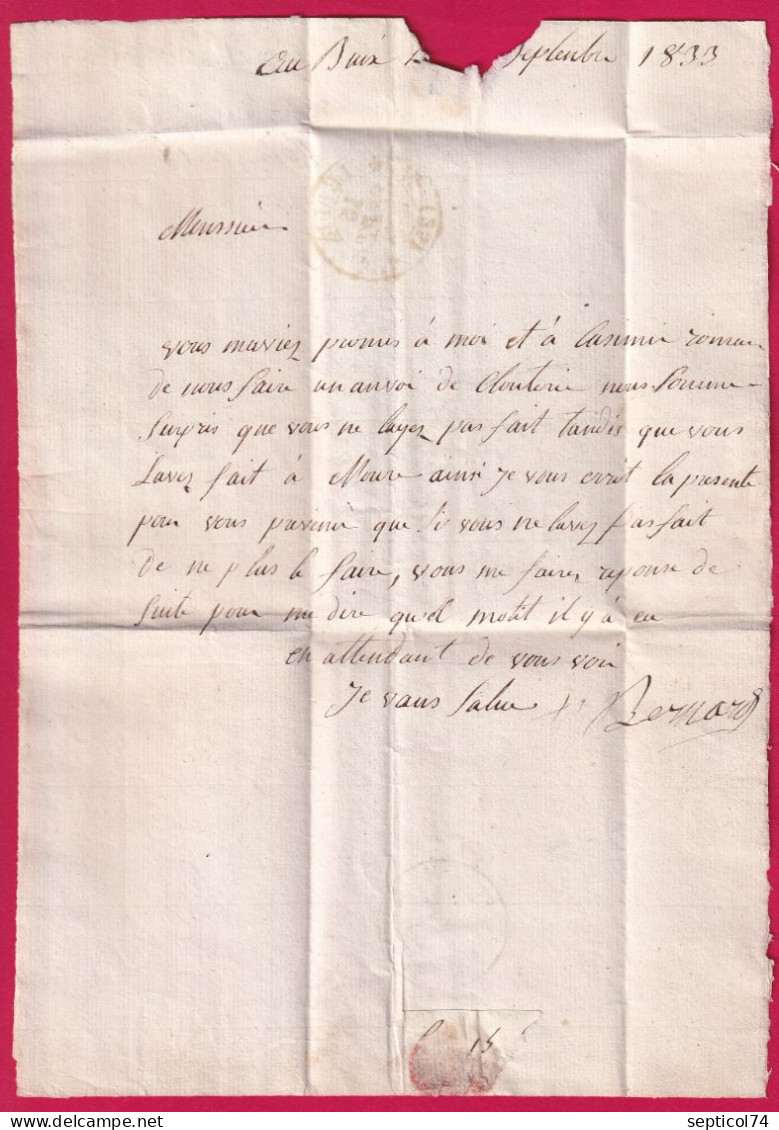 Au Buix Septenbre 1833
Monssieur
vous maviez promis à moi et à Casimir roman
de nous faire un anvoi de Clouterie nous Somme
Surpris que vous ne layez pas fait tandis que vous
Lavez fait à Moure ainsi Je vous ecrit la presente
pour vous prevenir que Si vous ne lavez pas fait
de ne plus le faire, vous me fairez reponse de
Suite pour me dire quel motif il y à eu
en attendant de vous voir
Je vous Salue Bernard
15
septicol74